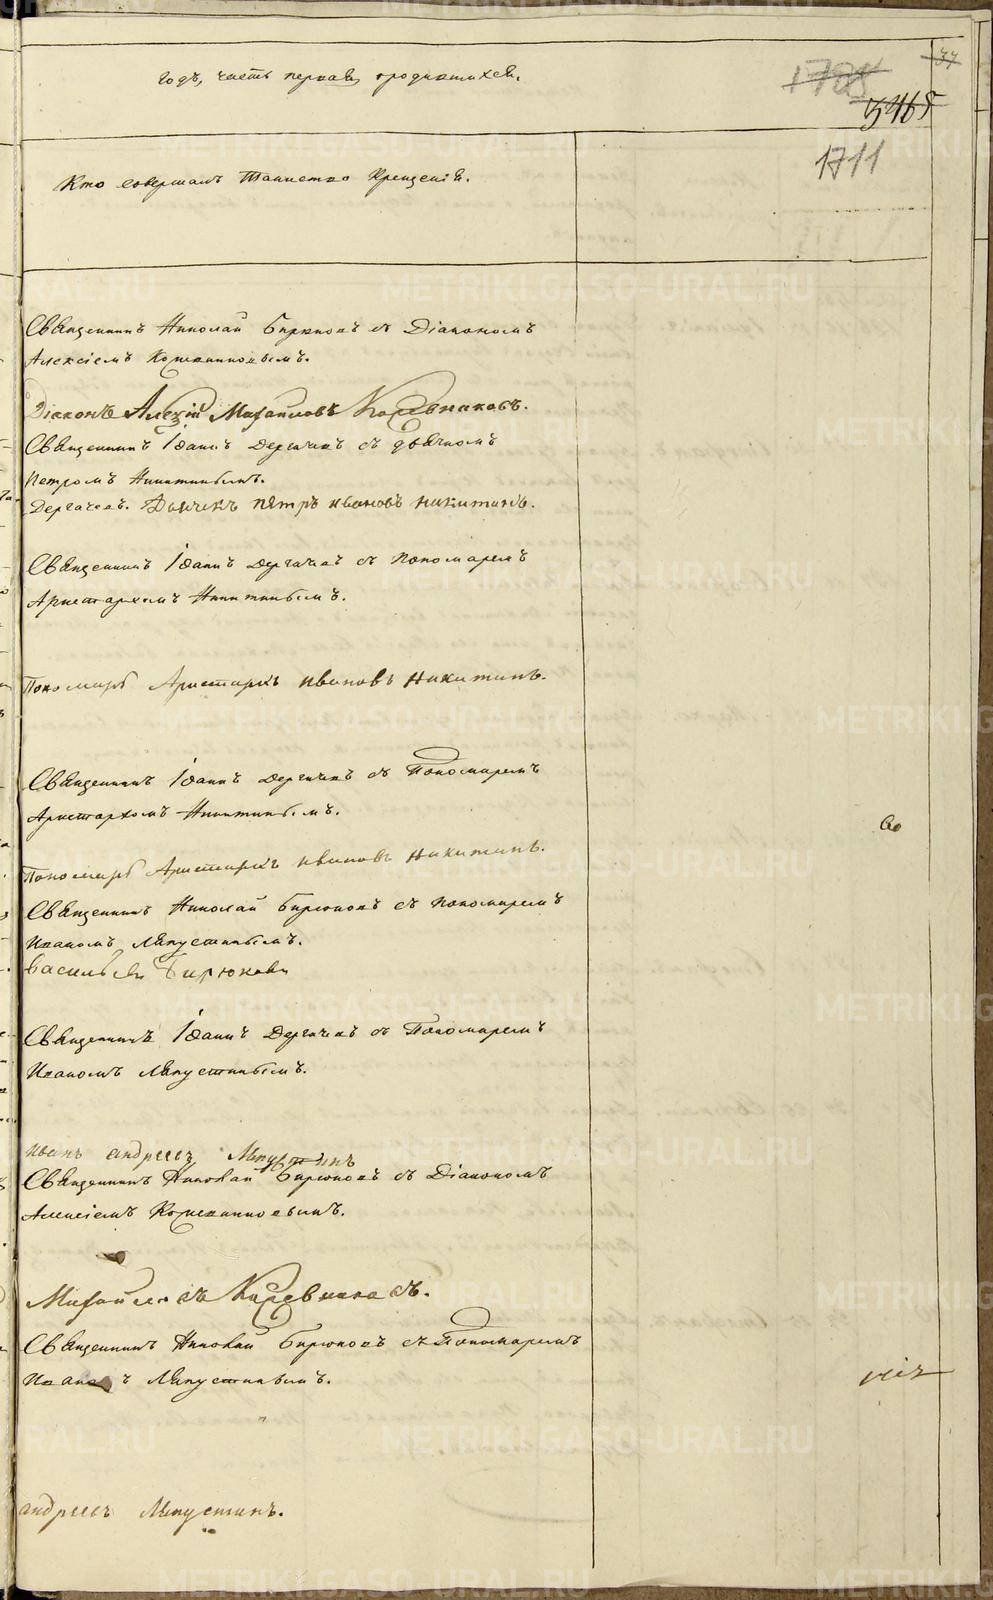 годъ, часть первая, о родившихся.
37
1785
5465
1711
Кто совершалъ Таинство Крещенія.
Священникъ Николай Бирюковъ съ Діакономъ
Алексіемъ Кожевниковымъ.
Діаконъ Алексій Михайловъ Кожевниковъ.
Священникъ Іоаннъ Дергачевъ съ дьячкомъ
Петромъ Никитинымъ.
Дергачевъ. Дьячекъ Пётръ Ивановъ Никитинъ.
Священникъ Іоаннъ Дергачевъ съ Пономаремъ
Аристархомъ Никитинымъ.
Пономарь Аристархъ Ивановъ Никитинъ.
Священникъ Іоаннъ Дергачевъ съ Пономаремъ
Аристархомъ Никитинымъ.
Пономарь Аристархъ Ивановъ Никитинъ.
Священникъ Николай Бирюковъ съ Пономаремъ
Иваномъ Ляпустинымъ.
Васильевъ Бирюковъ
Священникъ Іоаннъ Дергачевъ съ Пономаремъ
Иваномъ Ляпустинымъ.
Иванъ Андреевъ Ляпустинъ
Священникъ Николай Бирюковъ съ Діакономъ
Алексіемъ Кожевниковымъ.
Михайловъ Кожевниковъ.
Священникъ Николай Бирюковъ съ Пономаремъ
Иваномъ Ляпустинымъ.
Андреевъ Ляпустинъ.
METRIKI.GASO-URAL.RU